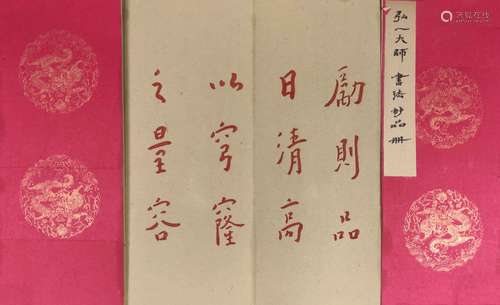 弘一大師 書法妙品冊
勵則品
日清高
以穹窿
之量容